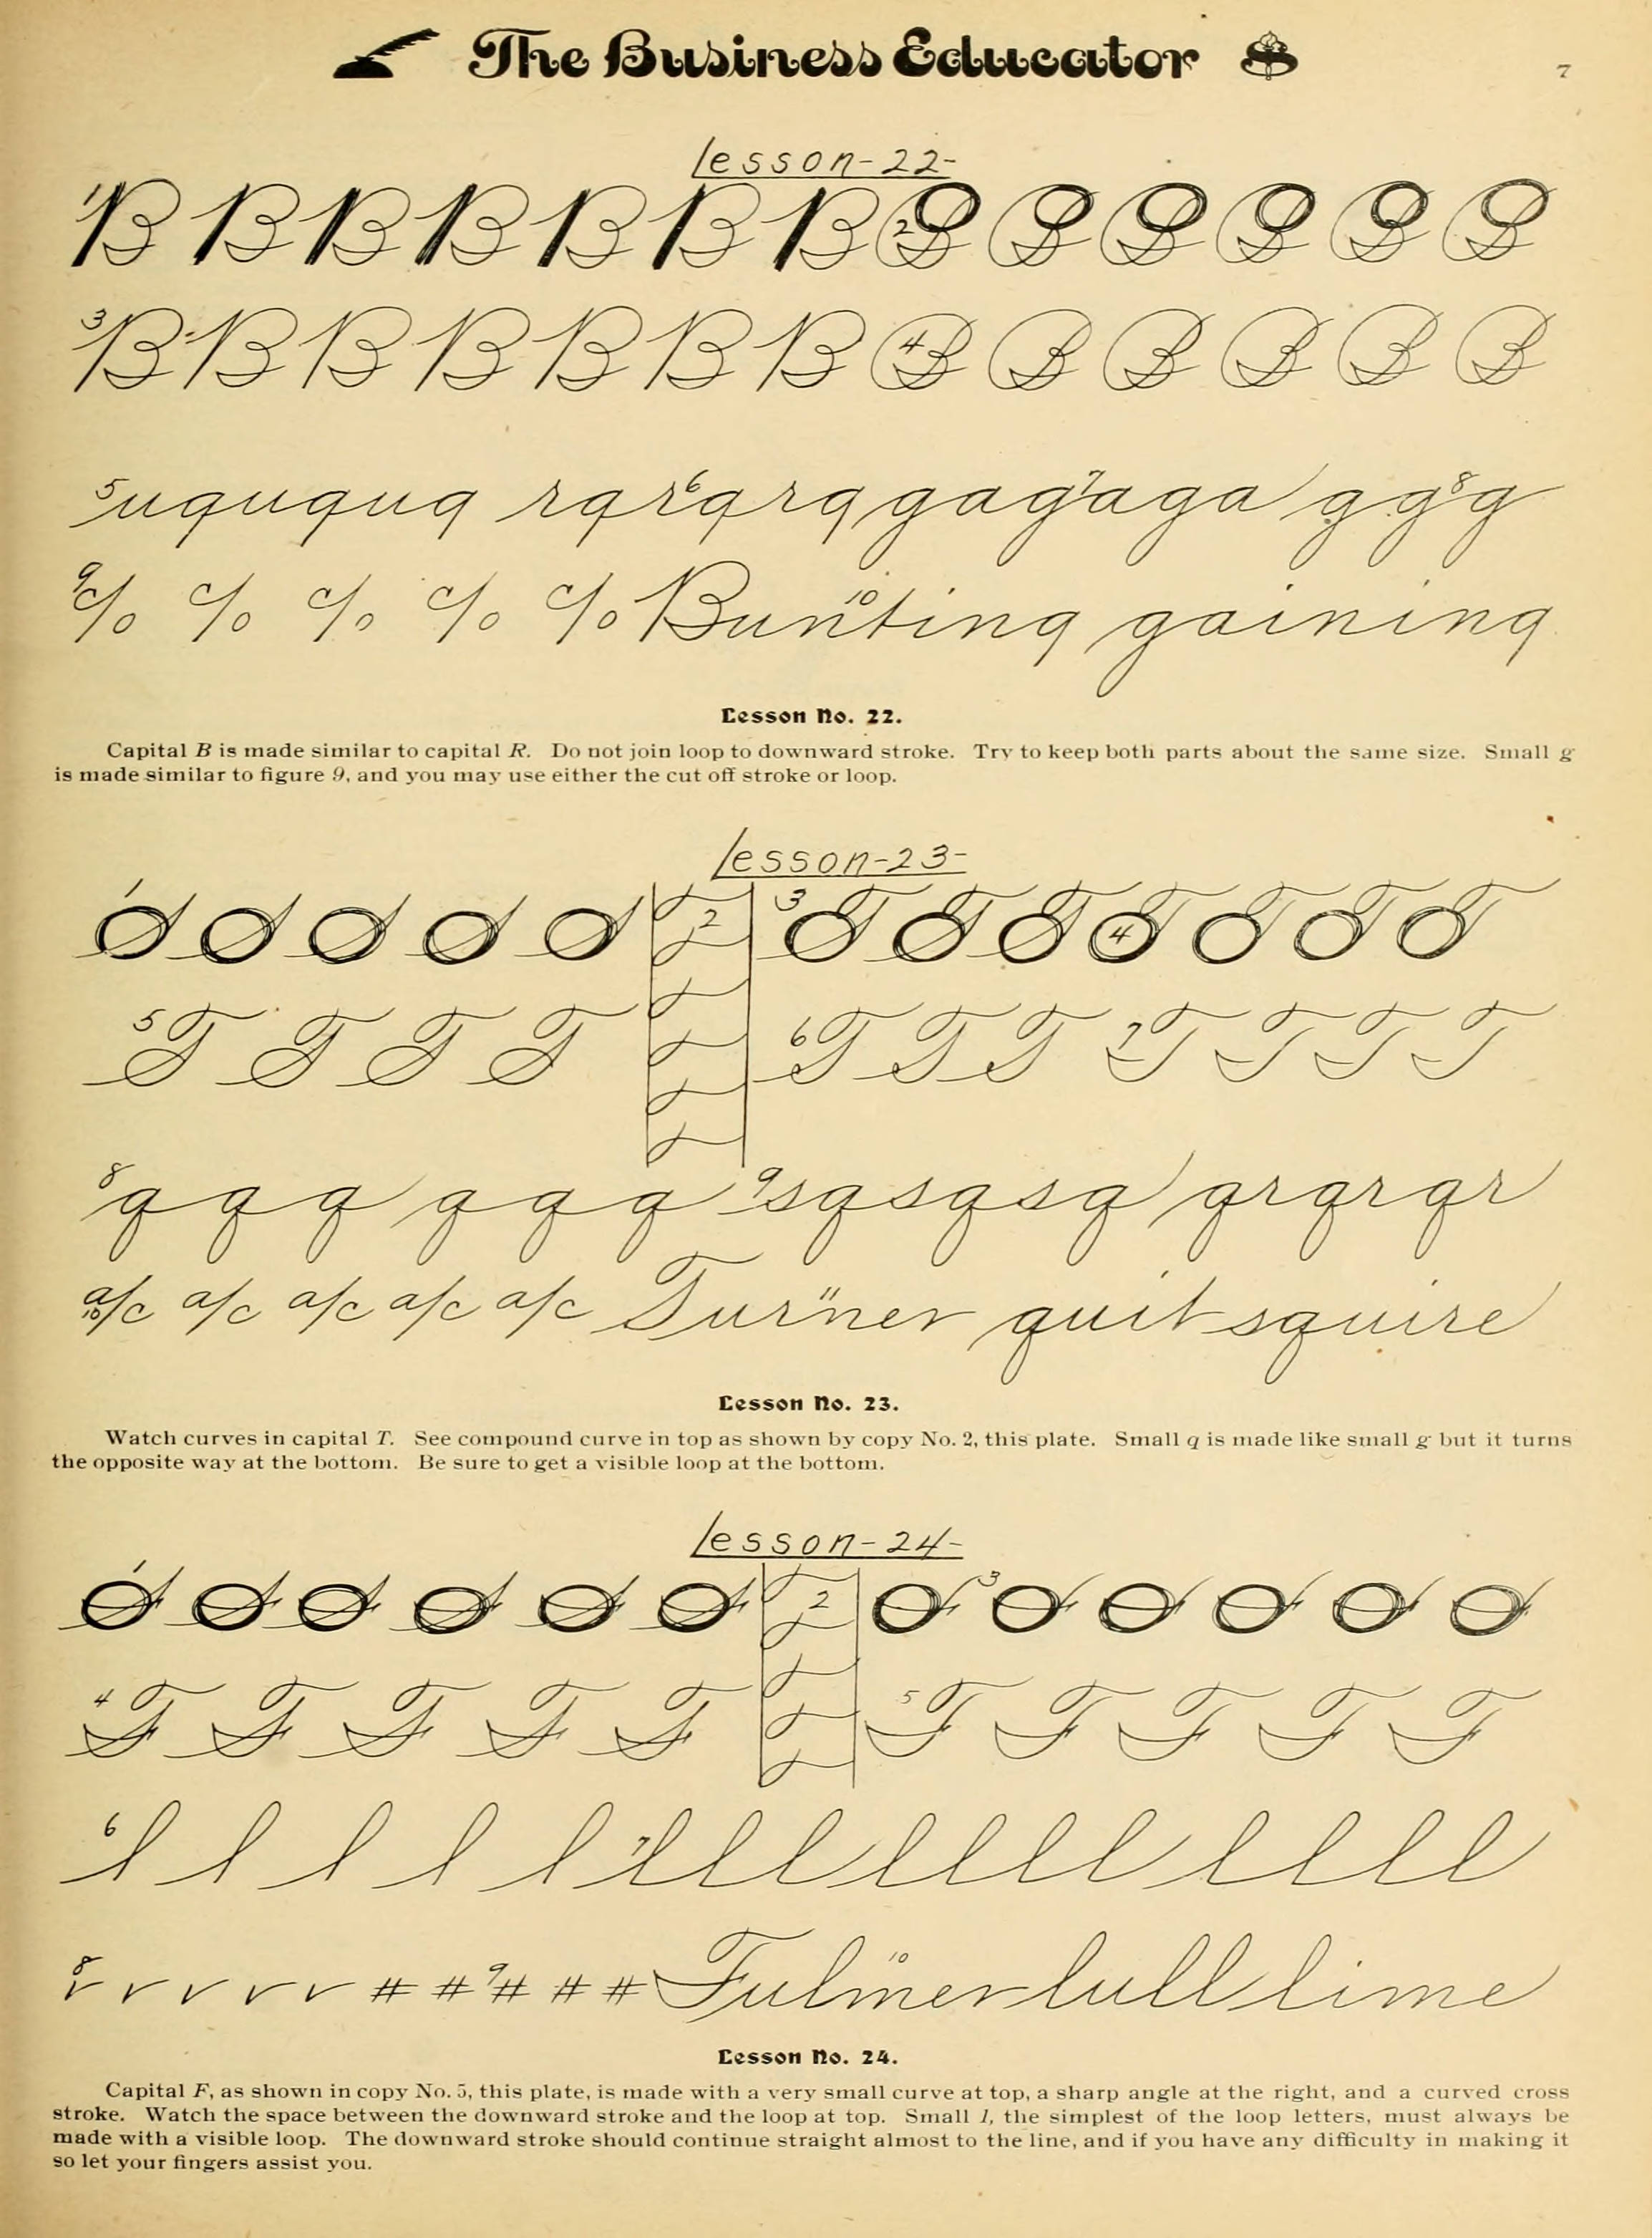 The Business Educator
7
Lesson-22-
1 B B B B B B B 2 B B B B B B
3 B B B B B B B 4 B B B B B B
5 ugugug rgr 6 grg gag 7 aga gg 8 g
9 c/o c/o c/o c/o c/o 10 Bunting gaining
Lesson No. 22.
Capital B is made similar to capital R. Do not join loop to downward stroke. Try to keep both parts about the same size. Small g
is made similar to figure 9, and you may use either the cut off stroke or loop.
Lesson-23-
1 2 3 4
5 T T T T 6 T T T 7 T T T T
8 q q q q q q 9 sqsqsq qrqrqr
10 a/c a/c a/c a/c a/c 11 Turner quit squire
Lesson No. 23.
Watch curves in capital T. See compound curve in top as shown by copy No. 2, this plate. Small q is made like small g but it turns
the opposite way at the bottom. Be sure to get a visible loop at the bottom.
Lesson-24-
1 2 3
4 F F F F F 5 F F F F F
6 l l l l l 7 lll llll llll
8 r r r r r # # 9 # # # 10 Fulmer lull lime
Lesson No. 24.
Capital F, as shown in copy No. 5, this plate, is made with a very small curve at top, a sharp angle at the right, and a curved cross
stroke. Watch the space between the downward stroke and the loop at top. Small l, the simplest of the loop letters, must always be
made with a visible loop. The downward stroke should continue straight almost to the line, and if you have any difficulty in making it
so let your fingers assist you.